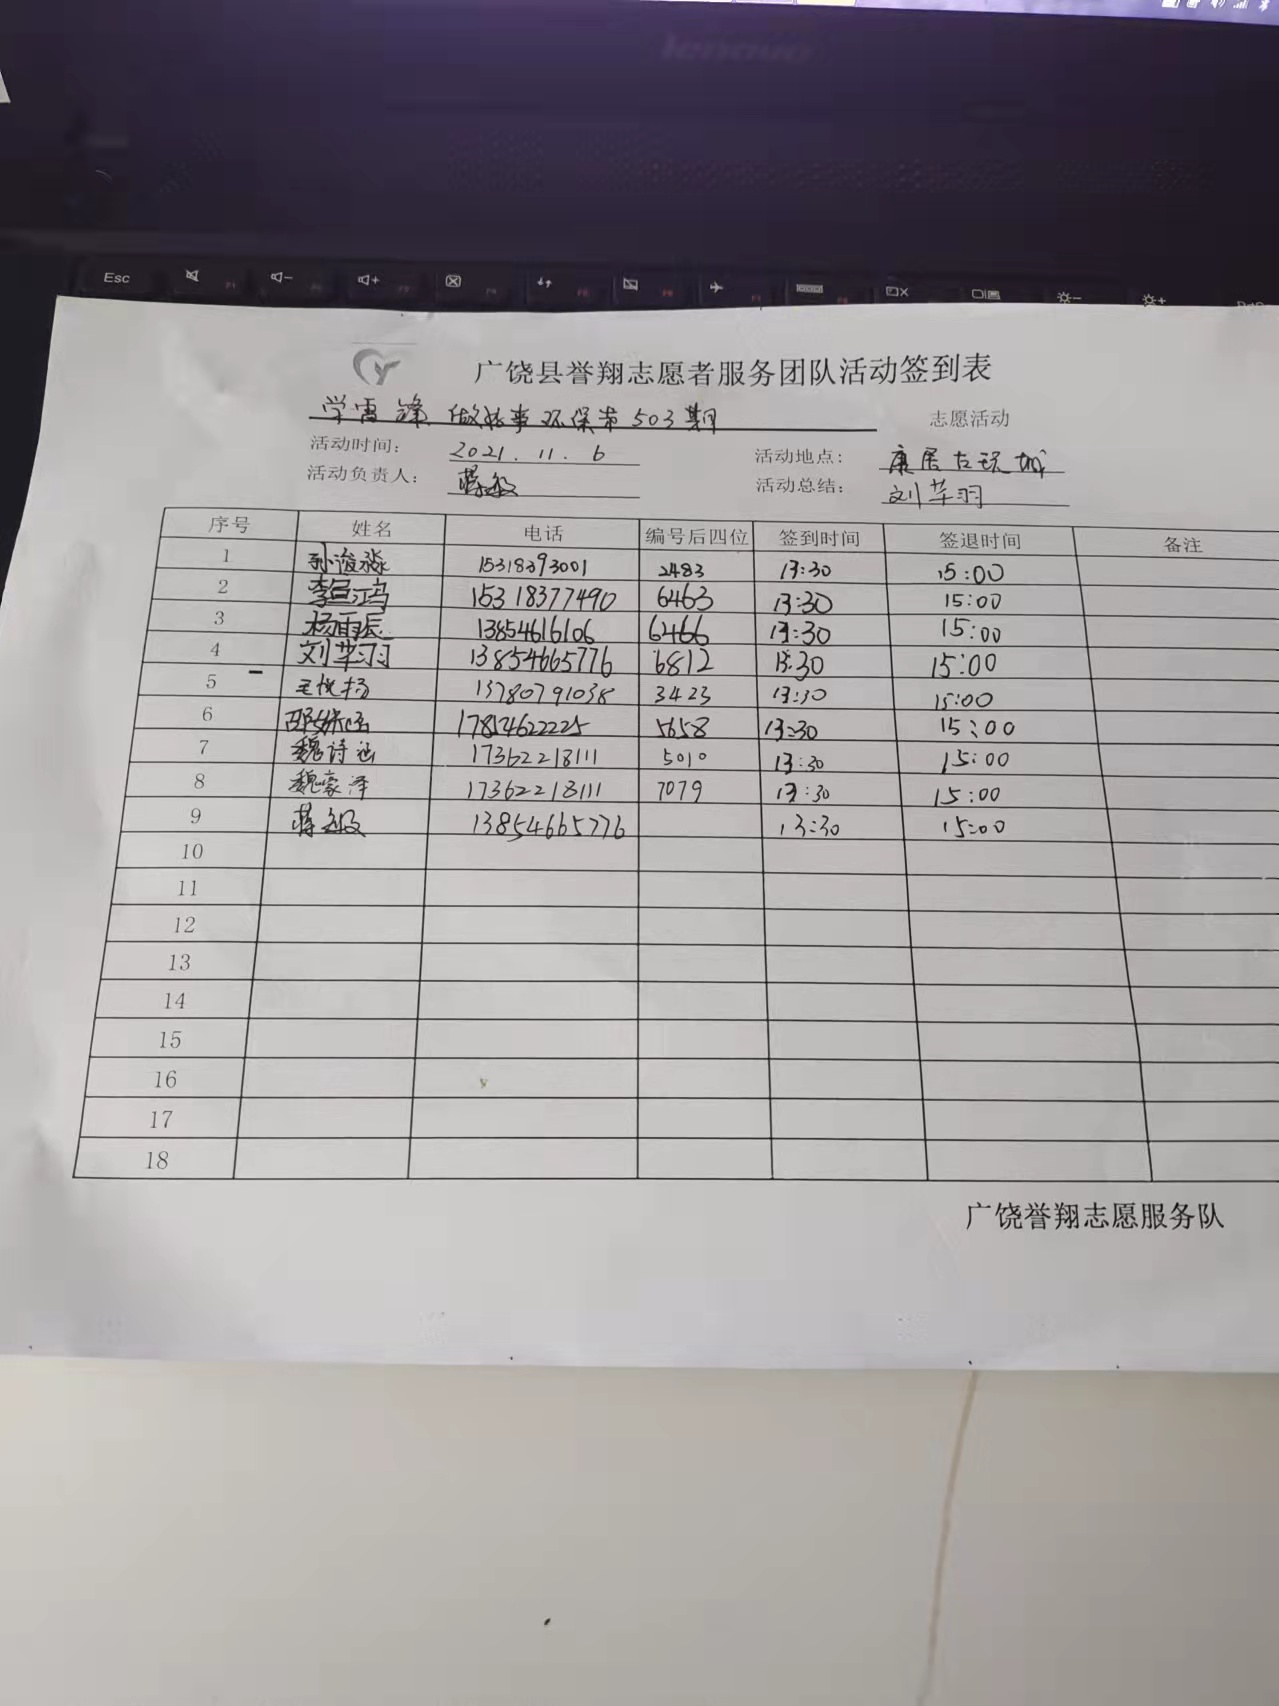 lenovo
Esc
广饶县誉翔志愿者服务团队活动签到表
学雷锋 做好事 环保第503期 志愿活动
活动时间： 2021.11.6 活动地点： 康居古琅城
活动负责人： 活动总结： 刘苹羽
序号 姓名 电话 编号后四位 签到时间 签退时间 备注
1 孙浚淼 15318393001 2483 13:30 15:00
2 李 鸿 15318377490 6463 13:30 15:00
3 杨雨辰 13854616106 6466 13:30 15:00
4 刘苹羽 13854665776 6812 13:30 15:00
5 王悦扬 13780791038 3423 13:30 15:00
6 邵 涵 17854622225 5658 13:30 15:00
7 魏诗涵 17362218111 5010 13:30 15:00
8 魏豪泽 17362218111 7079 13:30 15:00
9 蒋 13854665776 13:30 15:00
10
11
12
13
14
15
16
17
18
广饶誉翔志愿服务队